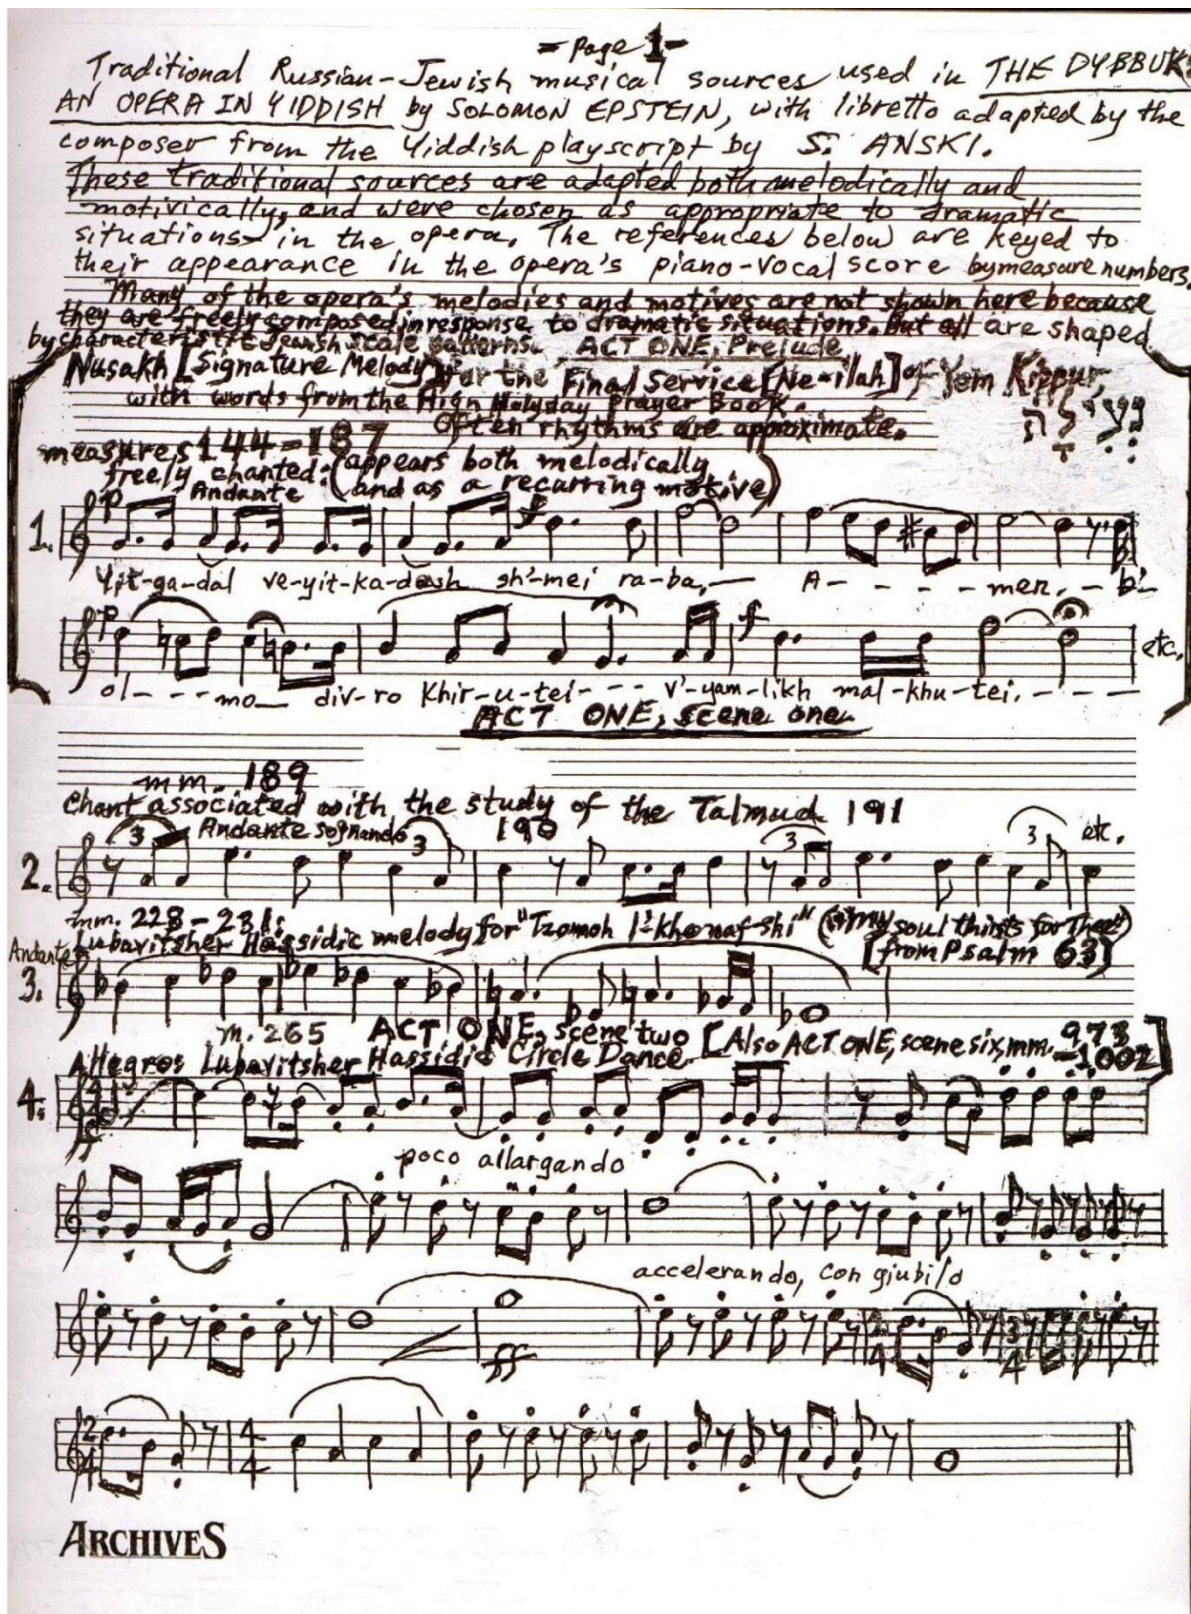 - Page 1 -
Traditional Russian-Jewish musical sources used in THE DYBBUK:
AN OPERA IN YIDDISH by SOLOMON EPSTEIN, with libretto adapted by the
composer from the Yiddish playscript by S. ANSKI.
These traditional sources are adapted both melodically and
motivically, and were chosen as appropriate to dramatic
situations in the opera. The references below are keyed to
their appearance in the opera's piano-vocal score by measure numbers.
Many of the opera's melodies and motives are not shown here because
they are freely composed in response to dramatic situations. But all are shaped
by characteristic Jewish scale patterns. ACT ONE, Prelude
Nusakh [Signature Melody] for the Final Service [Ne-ilah] of Yom Kippur,
with words from the High Holyday Prayer Book. נְעִילָה
Often rhythms are approximate.
measures 144-187
freely chanted: (appears both melodically
Andante and as a recurring motive)
1. p f
Yit-ga-dal ve-yit-ka-dash sh'-mei ra-ba,— A- - - - men. - b'-
p f etc.
ol- - - - mo— div-ro khir-u-tei- - - - v'-yam-likh mal-khu-tei. - - - -
ACT ONE, scene one
mm. 189
Chant associated with the study of the Talmud 191
3 Andante sognando 3 190 3 3 etc.
2.
mm. 228-231:
Lubavitsher Hassidic melody for "Tzomoh l'-kho naf-shi" ("my soul thirsts for Thee")
Andante [from Psalm 63]
3.
m. 265 ACT ONE, scene two [Also ACT ONE, scene six, mm. 978
-1,002]
Allegro: Lubavitsher Hassidic Circle Dance
4. 4 4 f
poco allargando
accelerando, con giubilo
ff 3 4
2 4 4 4
ARCHIVES